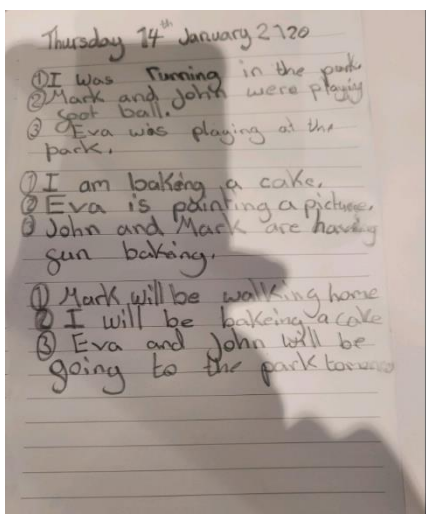 Thursday 14th January 2120
① I was running in the park
② Mark and John were playiy
spot ball.
③ Eva was playing at the
park.
① I am bakeing a cake.
② Eva is painting a picture.
③ John and Mark are having
sun baking.
① Mark will be walking home
② I will be bakeing a cake
③ Eva and John will be
going to the park